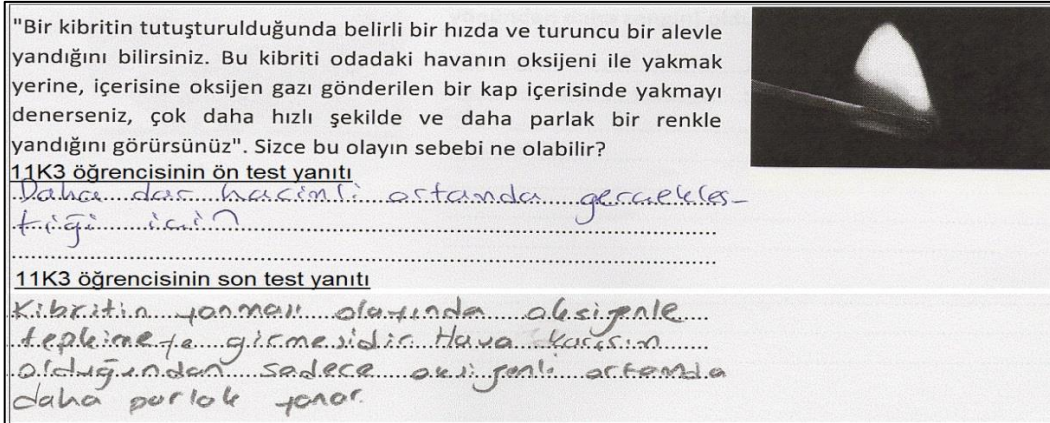 "Bir kibritin tutuşturulduğunda belirli bir hızda ve turuncu bir alevle
yandığını bilirsiniz. Bu kibriti odadaki havanın oksijeni ile yakmak
yerine, içerisine oksijen gazı gönderilen bir kap içerisinde yakmayı
denerseniz, çok daha hızlı şekilde ve daha parlak bir renkle
yandığını görürsünüz". Sizce bu olayın sebebi ne olabilir?
11K3 öğrencisinin ön test yanıtı
Daha dar hacimli ortamda gerçekleş-
tiği için
11K3 öğrencisinin son test yanıtı
Kibritin yanması olayında oksijenle
tepkimeye girmesidir. Hava karışım
olduğundan sadece oksijenli ortamda
daha parlak yanar.